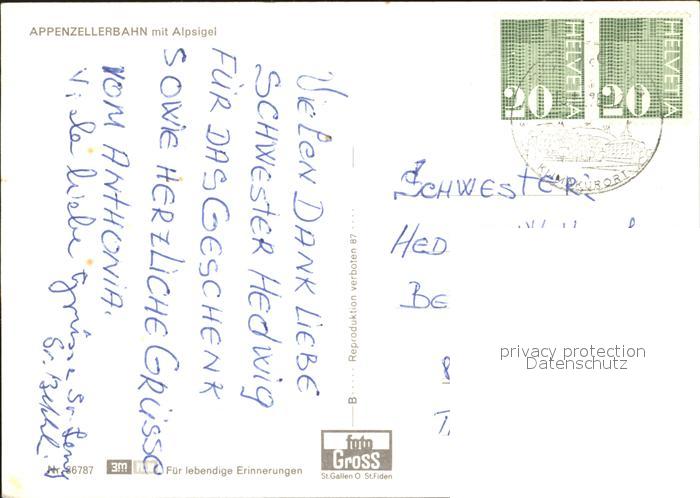 APPENZELLERBAHN mit Alpsigel
HELVETIA
20
HELVETIA
20
KLIMAKURORT
VIELEN DANK LIEBE
SCHWESTER HEDWIG
FÜR DAS GESCHENK
SOWIE HERZLICHE GRÜSSE
VOM ANTHONIA.
Viele liebe
SCHWESTER
HED
BE
8
T
privacy protection
Datenschutz
B Reproduktion verboten 87
Nr. 36787 3M Für lebendige Erinnerungen
foto
GROSS
St.Gallen O St.Fiden